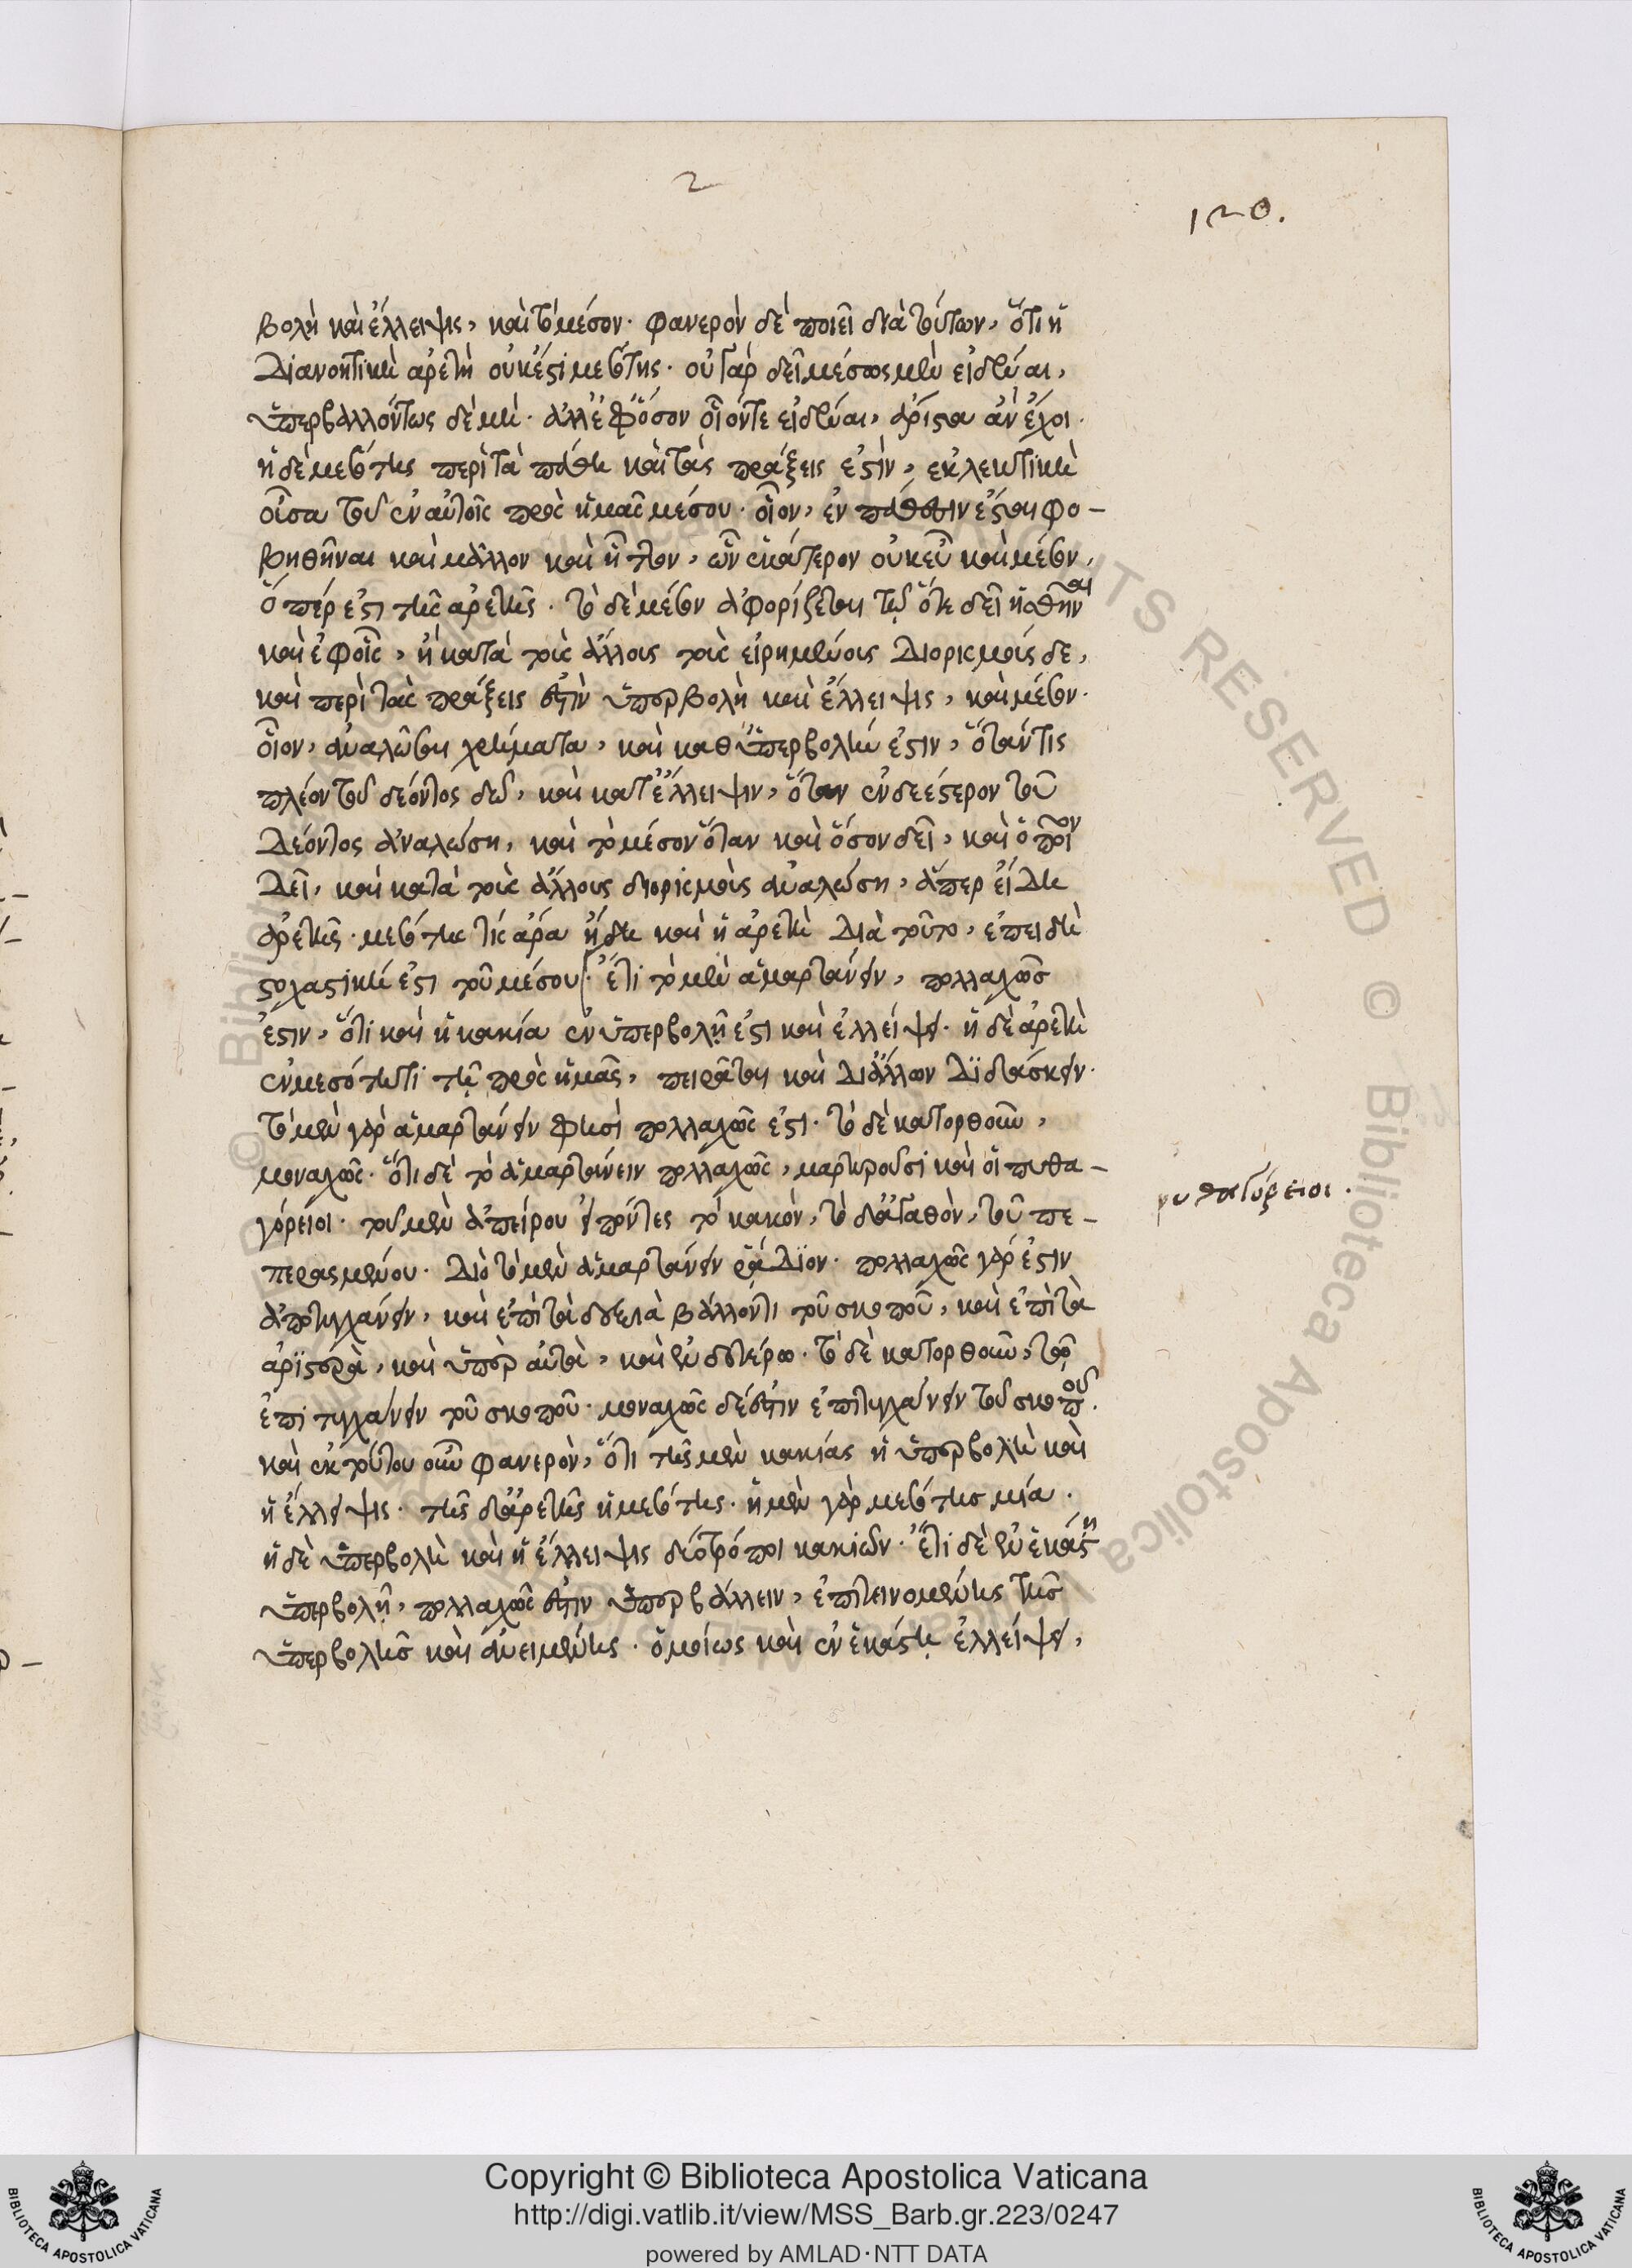 2
120.
βολὴ καὶ ἔλλειψις, καὶ τὸ μέσον. φανερὸν δὲ ποιεῖ διὰ τούτων, ὅτι ἡ
διανοητικὴ ἀρετὴ οὐκ ἔστι μεσότης. οὐ γὰρ δεῖ μέσως μὲν εἰδέναι,
ὑπερβαλλόντως δὲ μή. ἀλλ' ἐφ' ὅσον οἷόν τε εἰδέναι, ἄριστα ἂν ἔχοι.
ἡ δὲ μεσότης περὶ τὰ πάθη καὶ τὰς πράξεις ἐστὶν, ἐκλεκτικὴ
οὖσα τοῦ ἐν αὐτοῖς πρὸς ἡμᾶς μέσου. οἷον, ἐν πάθεσιν ἔσται φο-
βηθῆναι καὶ μᾶλλον καὶ ἧττον, ὧν ἑκάτερον οὐκ εὖ καὶ μέσον,
ὅπέρ ἐστι τῆς ἀρετῆς. τὸ δὲ μέσον ἀφορίζεται τῷ ὅτε δεῖ ἡσθῆναι
καὶ ἐφ' οἷς, ἢ κατὰ τοὺς ἄλλους τοὺς εἰρημένους διορισμούς δε,
καὶ περὶ τὰς πράξεις ἐστὶν ὑπερβολὴ καὶ ἔλλειψις, καὶ μέσον.
οἷον, ἀναλῶσαι χρήματα, καὶ καθ' ὑπερβολήν ἐστιν, ὅταν τις
πλέον τοῦ δέοντος δῷ, καὶ κατ' ἔλλειψιν, ὅταν ἐνδεέστερον τοῦ
δέοντος ἀναλώση, καὶ τὸ μέσον ὅταν καὶ ὅσον δεῖ, καὶ ὃ τρόπον
δεῖ, καὶ κατὰ τοὺς ἄλλους διορισμοὺς ἀναλώση, ἅπερ εἴδη
ἀρετῆς. μεσότης τίς ἄρα ἤδη καὶ ἡ ἀρετὴ διὰ τοῦτο, ἐπειδὴ
στοχαστική ἐστι τοῦ μέσου. ἔτι τὸ μὲν ἁμαρτάνειν, πολλαχῶς
ἔστιν, ὅτι καὶ ἡ κακία ἐν ὑπερβολῇ ἐστι καὶ ἐλλείψει. ἡ δὲ ἀρετὴ
ἐν μεσότητι τῇ πρὸς ἡμᾶς, πειρᾶται καὶ δι' ἄλλων διδάσκειν.
τὸ μὲν γὰρ ἁμαρτάνειν φησὶ πολλαχῶς ἐστι. τὸ δὲ κατορθοῦν,
μοναχῶς. ὅτι δὲ τὸ ἁμαρτάνειν πολλαχῶς, μαρτυροῦσι καὶ οἱ πυθα-
γόρειοι. τοῦ μὲν ἀπείρου εἰπόντες τὸ κακὸν, τὸ δ' ἀγαθὸν, τοῦ πε-
περασμένου. διὸ τὸ μὲν ἁμαρτάνειν ῥάδιον. πολλαχῶς γάρ ἐστιν
ἀποτυγχάνειν, καὶ ἐπὶ τὰ δεξιὰ βάλλοντι τοῦ σκοποῦ, καὶ ἐπὶ τὰ
ἀριστερὰ, καὶ ὑπὲρ αὐτὰ, καὶ ἐνδοτέρω. τὸ δὲ κατορθοῦν, τὸ
ἐπιτυγχάνειν τοῦ σκοποῦ. μοναχῶς δέ ἐστιν ἐπιτυγχάνειν τοῦ σκοποῦ.
καὶ ἐκ τούτου οὖν φανερὸν, ὅτι τῆς μὲν κακίας ἡ ὑπερβολὴ καὶ
ἡ ἔλλειψις. τῆς δ' ἀρετῆς ἡ μεσότης. ἡ μὲν γὰρ μεσότης μία.
ἡ δὲ ὑπερβολὴ καὶ ἡ ἔλλειψις δύο τρόποι κακιῶν. ἔτι δὲ ἐν ἑκάστη
ὑπερβολῇ, πολλαχῶς ἐστιν ὑπερβάλλειν, ἐπιτεινομένης τῆς
ὑπερβολῆς καὶ ἀνειμένης. ὁμοίως καὶ ἐν ἑκάστῃ ἐλλείψει,
πυθαγόρειοι.
Copyright © Biblioteca Apostolica Vaticana
http://digi.vatlib.it/view/MSS_Barb.gr.223/0247
powered by AMLAD·NTT DATA
BIBLIOTECA APOSTOLICA VATICANA
BIBLIOTECA APOSTOLICA VATICANA